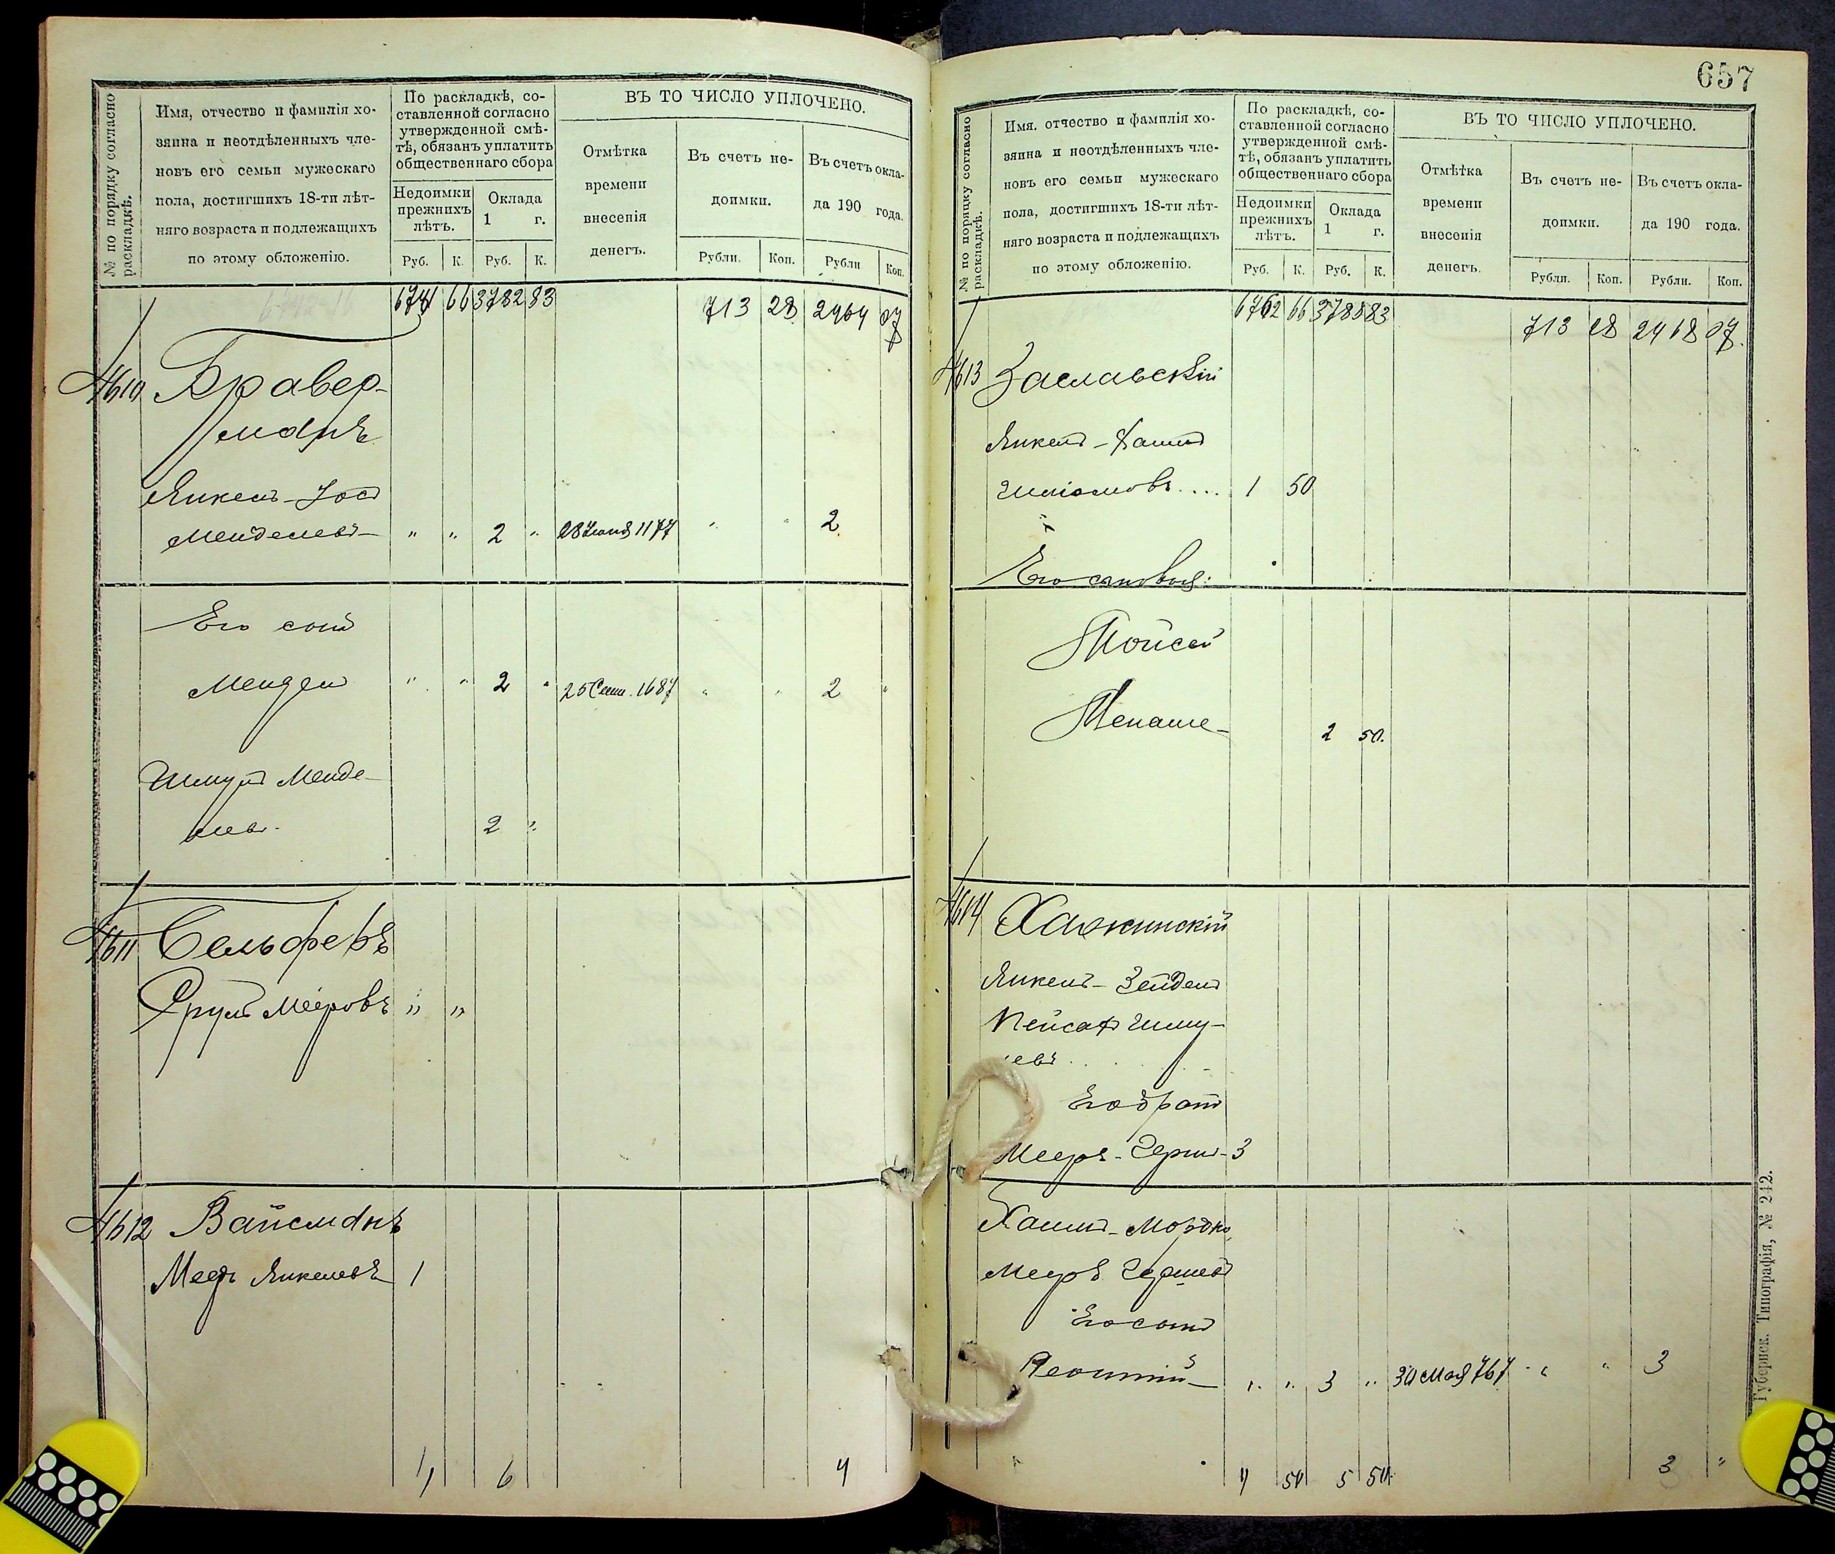 № по порядку согласно раскладкѣ.
Имя, отчество и фамилія хо-
зяина и неотдѣленныхъ чле-
новъ его семьи мужескаго
пола, достигшихъ 18-ти лѣт-
няго возраста и подлежащихъ
по этому обложенію.
По раскладкѣ, со-
ставленной согласно
утвержденной смѣ-
тѣ, обязанъ уплатить
общественнаго сбора
Недоимки
прежнихъ
лѣтъ.
Оклада
1 г.
Руб. К. Руб. К.
ВЪ ТО ЧИСЛО УПЛОЧЕНО.
Отмѣтка
времени
внесенія
денегъ.
Въ счетъ не-
доимки.
Въ счетъ окла-
да 190 года.
Рубли. Коп. Рубли Коп.
66 3782 83 713 28 2464 07
4610 Бравер-
манъ
Янкель-Іос
Менделевъ " " 2 " 28 Іюня 1177 " " 2
Его сынъ
Мендель " " 2 " 25 Сент. 1687 " " 2 "
Шмуль Менде-
левъ. 2 "
4611 Сельферъ
Сруль Меировъ " "
4612 Вайсманъ
Меер Янкелевъ 1
1 6 4
657
№ по порядку согласно раскладкѣ.
Имя, отчество и фамилія хо-
зяина и неотдѣленныхъ чле-
новъ его семьи мужескаго
пола, достигшихъ 18-ти лѣт-
няго возраста и подлежащихъ
по этому обложенію.
По раскладкѣ, со-
ставленной согласно
утвержденной смѣ-
тѣ, обязанъ уплатить
общественнаго сбора
Недоимки
прежнихъ
лѣтъ.
Оклада
1 г.
Руб. К. Руб. К.
ВЪ ТО ЧИСЛО УПЛОЧЕНО.
Отмѣтка
времени
внесенія
денегъ.
Въ счетъ не-
доимки.
Въ счетъ окла-
да 190 года.
Рубли. Коп. Рубли. Коп.
6762 66 3788 83 713 28 2468 07.
4613 Заславскій
Янкель-Хаимъ
Шліомовъ.... 1 50
Его сыновья:
Мойсей
Менаше 2 50.
4614 Хажинскій
Янкель-Зейдель
Пейсахъ Шму-
левъ
Его братъ
Мееръ-Герш- 3
Хаимъ-Мордко
Мееръ Гершевъ
Его сынъ
Леонтій " " 3 " 30 Мая 767 " " 3
4 50 5 50 3 "
Губернск. Типографія, № 242.